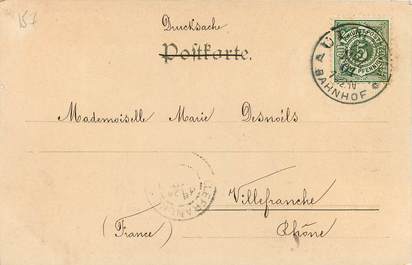 157
Drucksache
Postkarte.
5
PFENNIG
BAHNHOF
Mademoiselle Marie Desnoëls
Villefranche
(France) Rhône